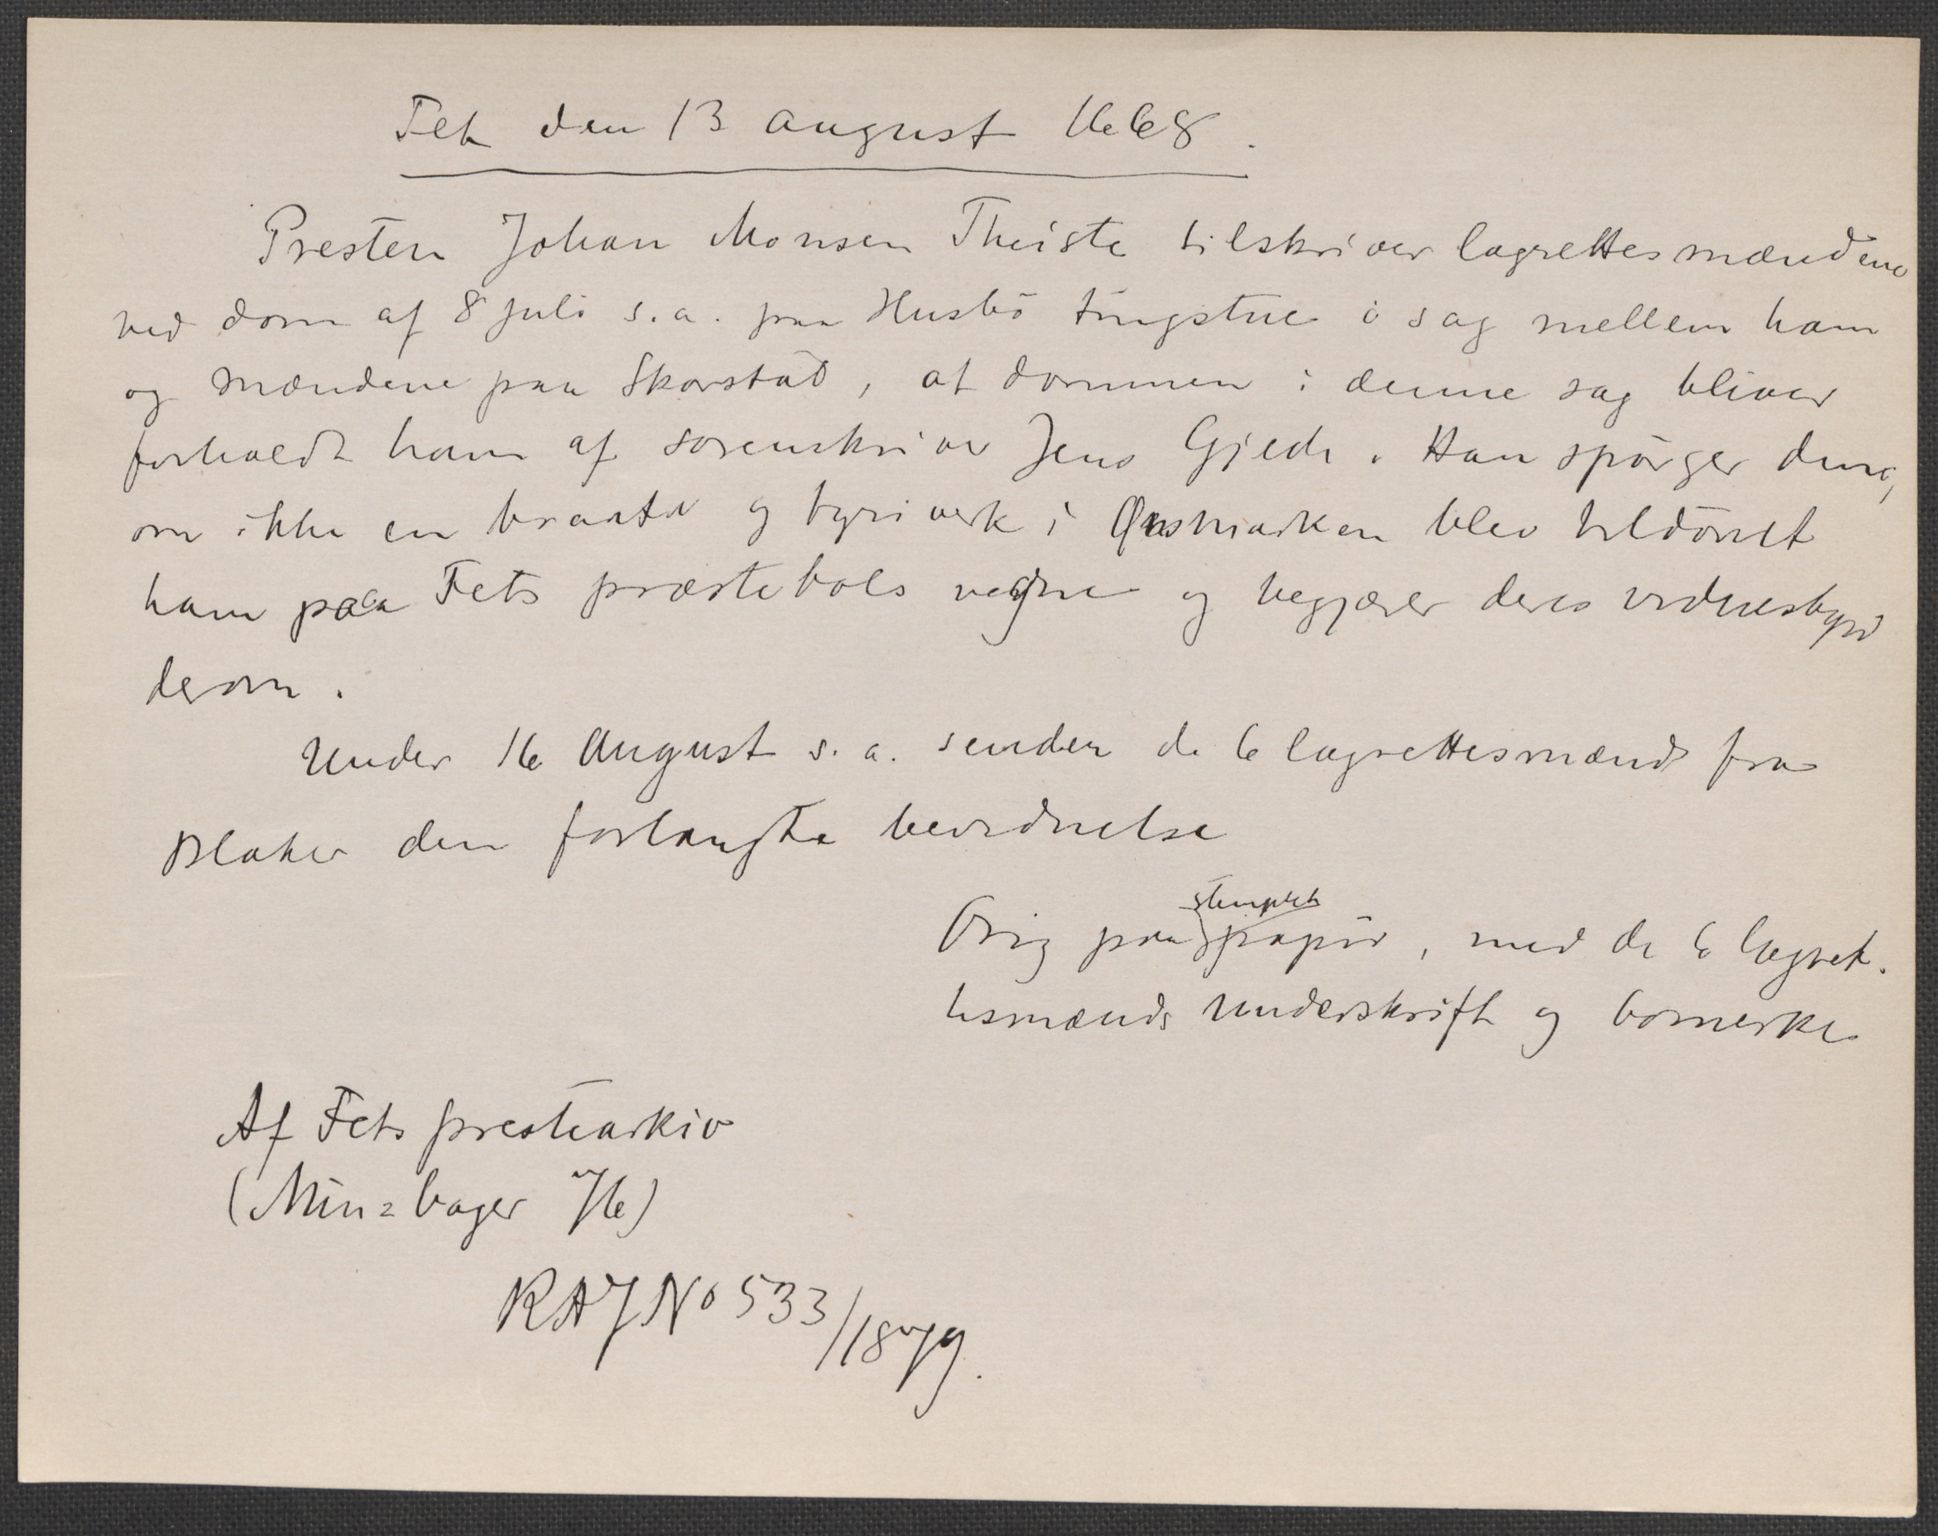 Fet den 13 august 1668.
Presten Johan Monsen Theiste tilskriver lagrettesmændene
ved dom af 8 juli s. a. paa Husbö tingstue i sag mellem ham
og mændene paa Skarstad, at dommen i denne sag bliver
forholdt ham af sorenskriver Jens Gjede. Han spörger dem,
om ikke en braate og tyriverk i marken blev tildömt
ham paa Fets præstebols vegne og begjærer deres vidnesbyrd
derom.
Under 16 August s. a. sender de 6 lagrettesmænd fra
Blaker den forlangte bevidnelse
stemplet
Orig paa papir, med de 6 lagret-
tesmænds underskrift og bomerke
Af Fets prestearkiv
(Min= bager 7/6)
RAJNo 533/1879.